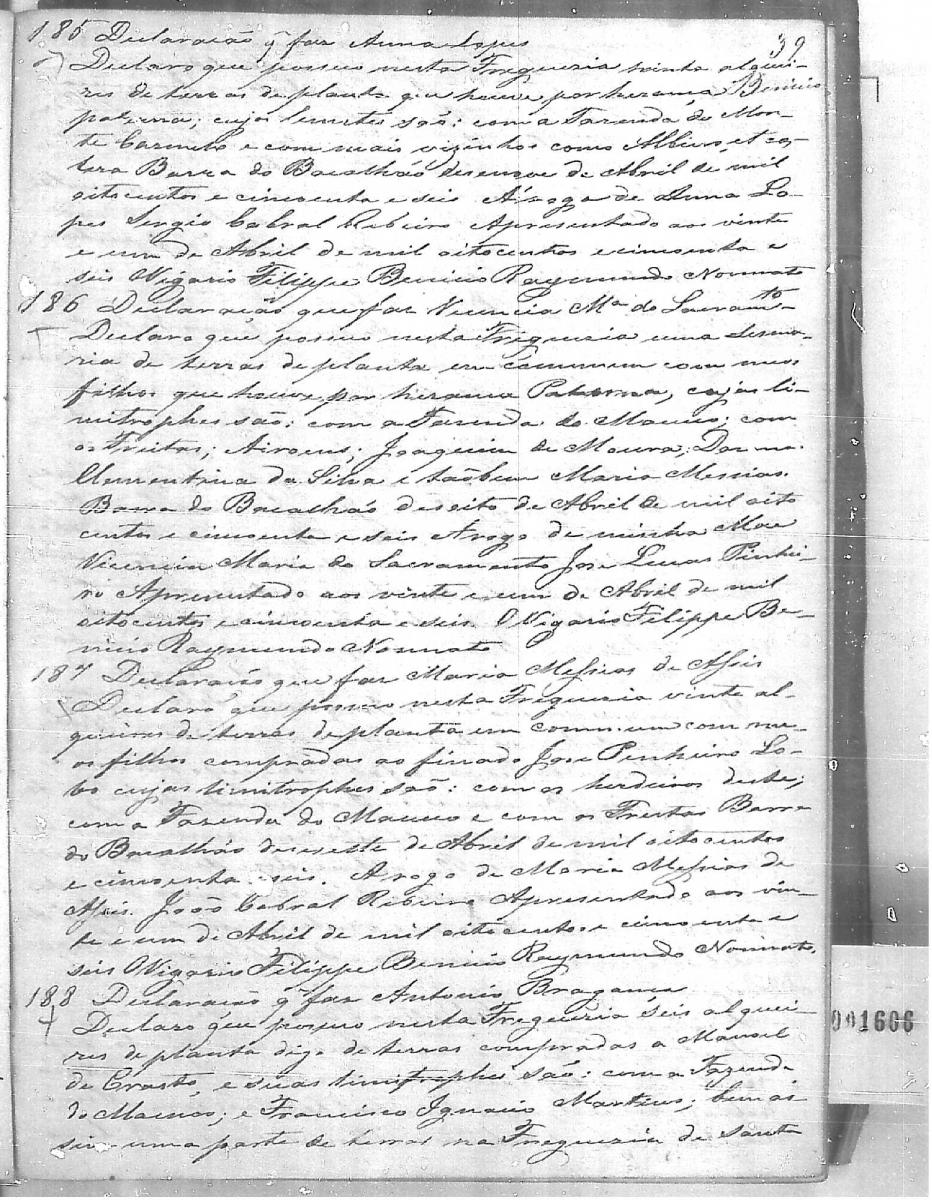 39
185 Declaração q̃ faz Anna Lopes
Declaro que possuo nesta Freguezia trinta alquei-
res de terras de planta que houve por herança
paterna; cujos limites são: com a Fazenda do Mon-
te Carmelo e com mais vizinhos como Albino et ca-
tera Barra do Bacalháo desenove de Abril de mil
oitocentos e cincoenta e seis Arogo de Anna Lo-
pes Sergio Cabral Ribeiro Apresentado aos vinte
e um de Abril de mil oitocentos e cincoenta e
seis O Vigario Filippe Benicio Raymundo Nonnato
186 Declaração que faz Vicencia Mª do Sacramto
Declaro que possuo nesta Freguezia uma Sesma-
ria de terras de planta em commum com meus
filhos que houve por herança Paterna, cujas li-
mitrophes são: com a Fazenda do Macuco; com
os Freitas; Joaquim de Moura; Dona
Clementina da Silva e tãobem Maria Messias
Barra do Bacalháo desoito de Abril de mil oito
centos e cincoenta e seis Arogo de minha Mae
Vicencia Maria do Sacramento Jose Lucas Pinhei-
ro Apresentado aos vinte e um de Abril de mil
oitocentos e cincoenta e seis O Vigario Filippe Be-
nicio Raymundo Nonnato
187 Declaração que faz Maria Messias de Assis
Declaro que possuo nesta Freguezia vinte al-
queires de terras de planta em commum com me-
os filhos compradas ao finado Jose Pinheiro Lo-
bo cujas limitrophes são: com os herdeiros deste;
com a Fazenda do Macuco e com os Freitas Barra
do Bacalháo desesete de Abril de mil oitocentos
e cincoenta seis. Arogo de Maria Messias de
Assis. João Cabral Ribeiro Apresentado aos vin-
te e um de Abril de mil oitocentos e cincoenta e
seis O Vigario Filippe Benicio Raymundo Nonnato.
188 Declaração q̃ faz Antonio Bragança
Declaro que possuo nesta Freguezia seis alquei-
res de planta digo de terras compradas a Manoel
de Crasto, e suas limitrophes são: com a Fazenda
do Macuco; e Francisco Ignacio Martins; bem as
sim uma parte de terras na Freguezia de Santa
001606